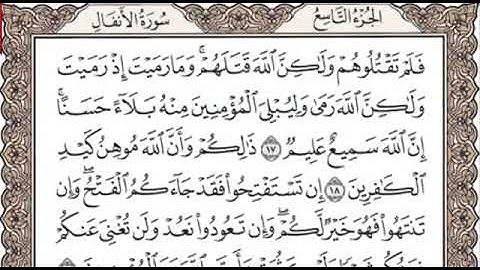 الجزء التاسع
سورة الأنفال
فَلَمْ تَقْتُلُوهُمْ وَلَٰكِنَّ ٱللَّهَ قَتَلَهُمْ ۚ وَمَا رَمَيْتَ إِذْ رَمَيْتَ
وَلَٰكِنَّ ٱللَّهَ رَمَىٰ ۚ وَلِيُبْلِىَ ٱلْمُؤْمِنِينَ مِنْهُ بَلَآءً حَسَنًا ۚ
إِنَّ ٱللَّهَ سَمِيعٌ عَلِيمٌ ١٧ ذَٰلِكُمْ وَأَنَّ ٱللَّهَ مُوهِنُ كَيْدِ
ٱلْكَٰفِرِينَ ١٨ إِن تَسْتَفْتِحُوا۟ فَقَدْ جَآءَكُمُ ٱلْفَتْحُ ۖ وَإِن
تَنتَهُوا۟ فَهُوَ خَيْرٌ لَّكُمْ ۖ وَإِن تَعُودُوا۟ نَعُدْ وَلَن تُغْنِىَ عَنكُمْ